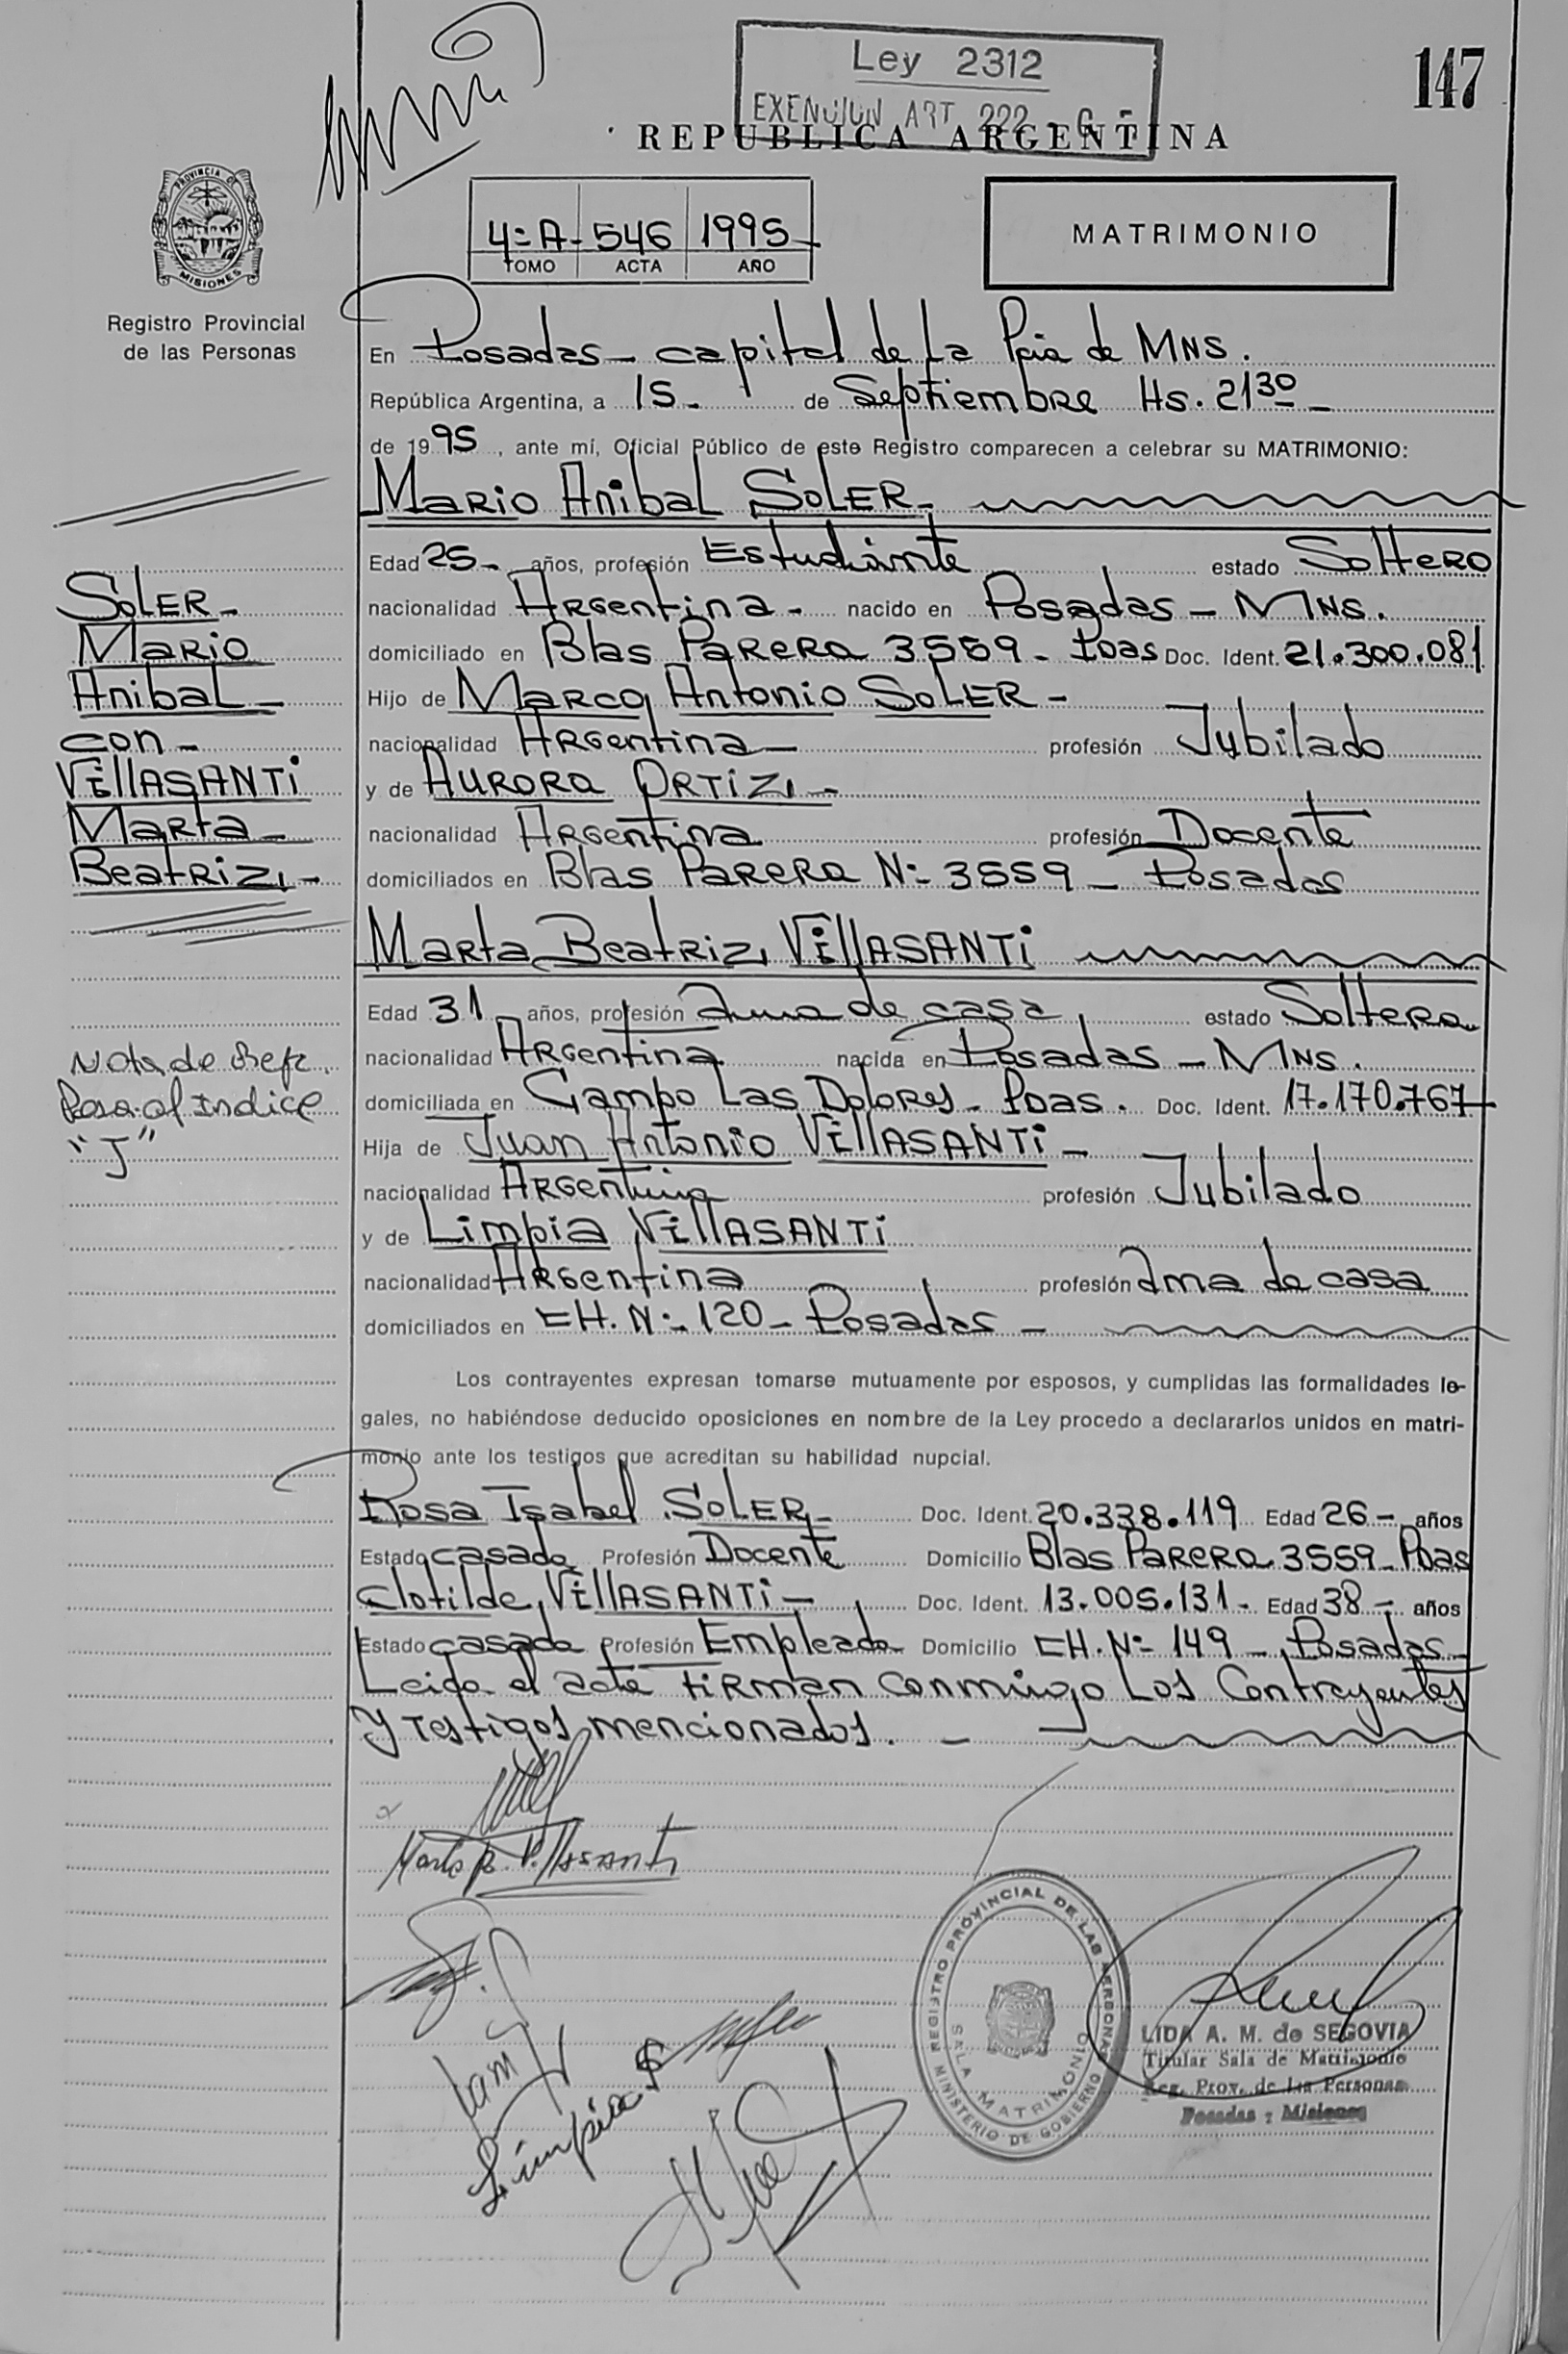 147
Ley 2312
EXENCION ART 222
REPUBLICA ARGENTINA
PROVINCIA DE
MISIONES
Registro Provincial
de las Personas
4=A- 546 1995
TOMO ACTA AÑO
MATRIMONIO
En Posadas - capital de La Pcia de MNS.
República Argentina, a 15- de Septiembre Hs. 21 30 -
de 1995, ante mí, Oficial Público de este Registro comparecen a celebrar su MATRIMONIO:
Mario Anibal SOLER -
Edad 25 - años, profesión Estudiante estado Soltero
nacionalidad Argentina - nacido en Posadas - MNS.
domiciliado en Blas Parera 3559 - Pdas Doc. Ident. 21.300.081
Hijo de Marco Antonio SOLER -
nacionalidad Argentina - profesión Jubilado
y de Aurora ORTIZ -
nacionalidad Argentina profesión Docente
domiciliados en Blas Parera Nº 3559 - Posadas
Marta Beatriz VILLASANTI
Edad 31 años, profesión Ama de casa estado Soltera
nacionalidad Argentina nacida en Posadas - MNS.
domiciliada en Campo Las Dolores - Pdas. Doc. Ident. 17.170.767
Hija de Juan Antonio VILLASANTI -
nacionalidad Argentina profesión Jubilado
y de Limpia VILLASANTI
nacionalidad Argentina profesión Ama de casa
domiciliados en CH. Nº 120 - Posadas -
Los contrayentes expresan tomarse mutuamente por esposos, y cumplidas las formalidades le-
gales, no habiéndose deducido oposiciones en nombre de la Ley procedo a declararlos unidos en matri-
monio ante los testigos que acreditan su habilidad nupcial.
Rosa Isabel SOLER - Doc. Ident. 20.338.119 Edad 26 - años
Estado casada Profesión Docente Domicilio Blas Parera 3559 - Pdas
Clotilde VILLASANTI - Doc. Ident. 13.005.131 - Edad 38 - años
Estado casada Profesión Empleada Domicilio CH. Nº 149 - Posadas -
Leida el acta firman conmigo Los Contrayentes
y Testigos mencionados. -
SOLER -
Mario
Anibal -
con -
VILLASANTI
Marta -
Beatriz -
Nota de Refr.
Pasa al Indice
"J"
Marta B. Villasanti
Limpia
REGISTRO PROVINCIAL DE LAS PERSONAS
SALA MATRIMONIO
MINISTERIO DE GOBIERNO
LIDA A. M. de SEGOVIA
Titular Sala de Matrimonio
Reg. Prov. de las Personas
Posadas - Misiones